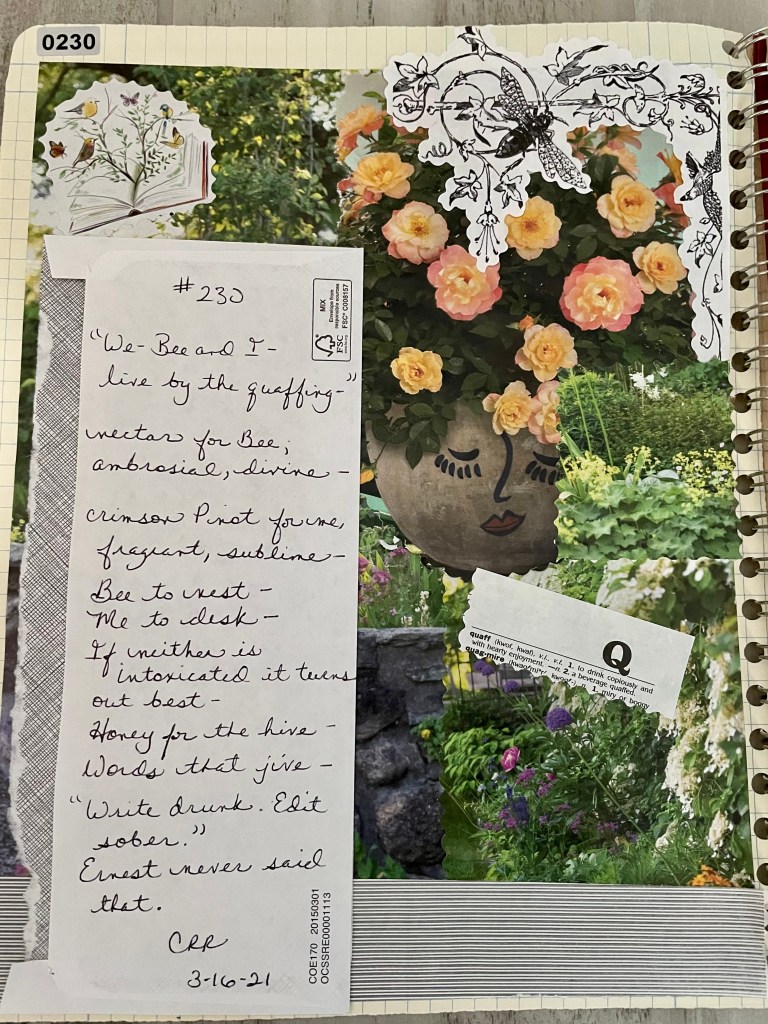 0230
#230
MIX
Envelope from
responsible sources
FSC® C008157
FSC
"We - Bee and I -
live by the quaffing -"
nectar for Bee,
ambrosial, divine -
crimson Pinot for me,
fragrant, sublime -
Bee to nest -
Me to desk -
If neither is
intoxicated it turns
out best -
Honey for the hive -
Words that jive -
"Write drunk. Edit
sober."
Ernest never said
that.
CRR
3-16-21
COE170 20150301
OCSSRE00001113
Q
quaff (kwof, kwaf), v.i., v.t. 1. to drink copiously and
with hearty enjoyment. —n. 2. a beverage quaffed.
quag·mire n. 1. miry or boggy